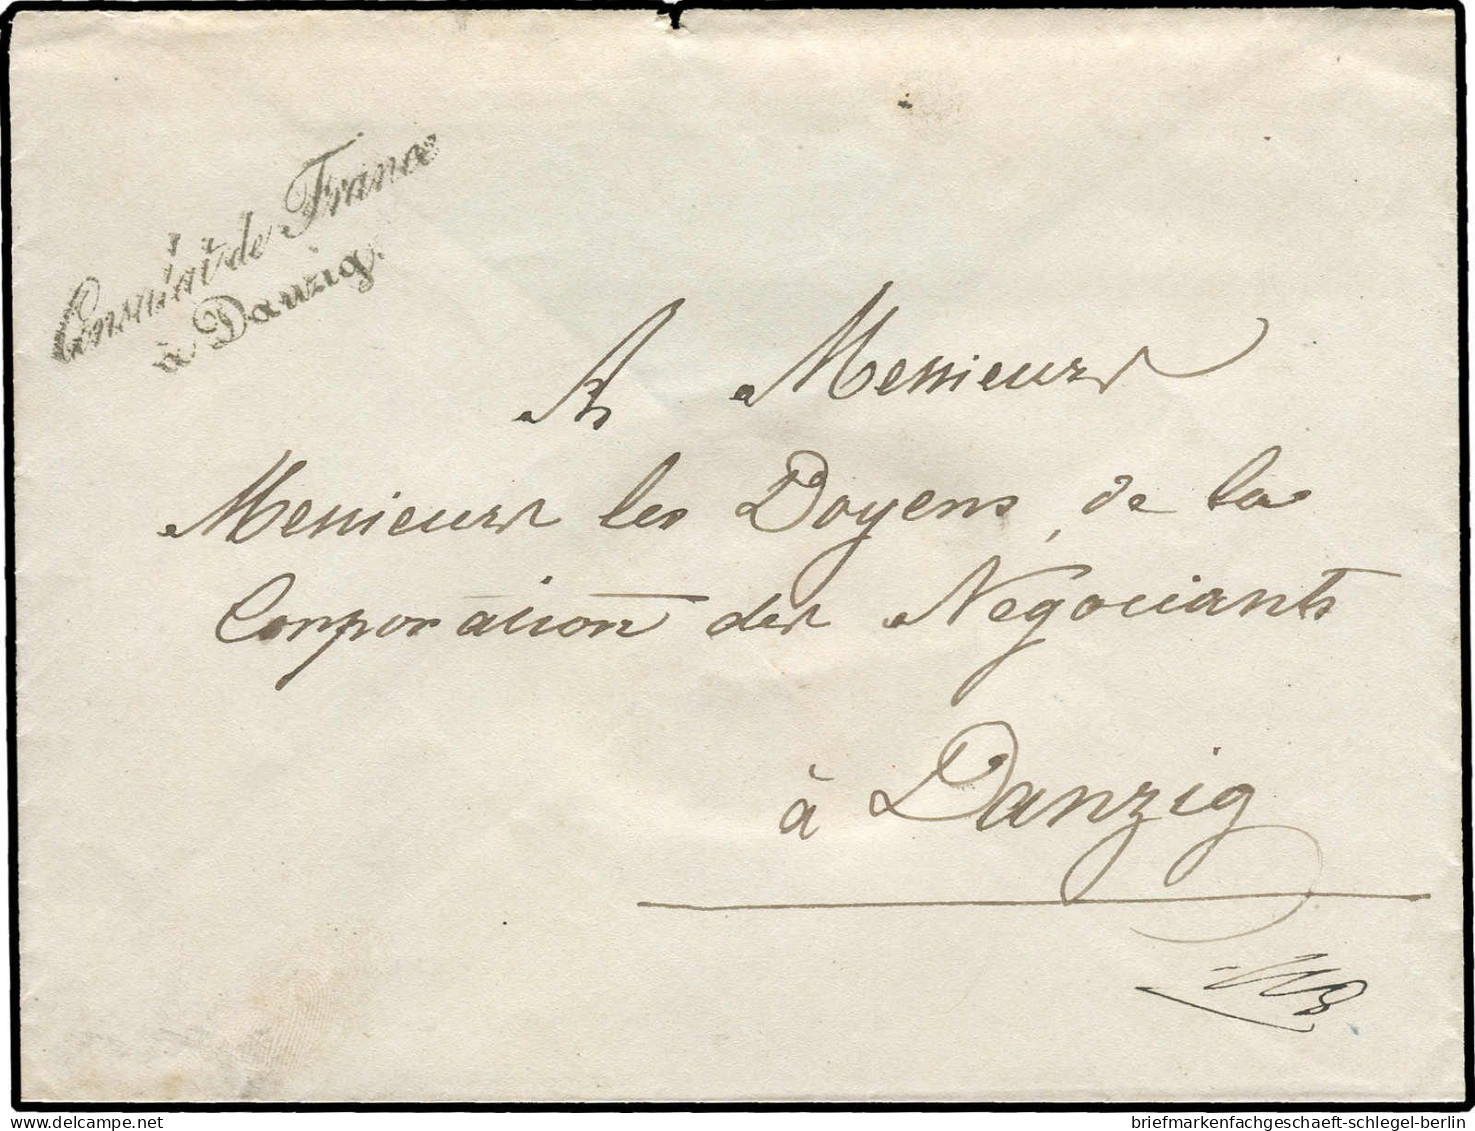 Consulat de France
à Danzig.
A Messieurs
Messieurs les Doyens de la
Corporation des Négociants
à Danzig
briefmarkenfachgeschaeft-schlegel-berlin